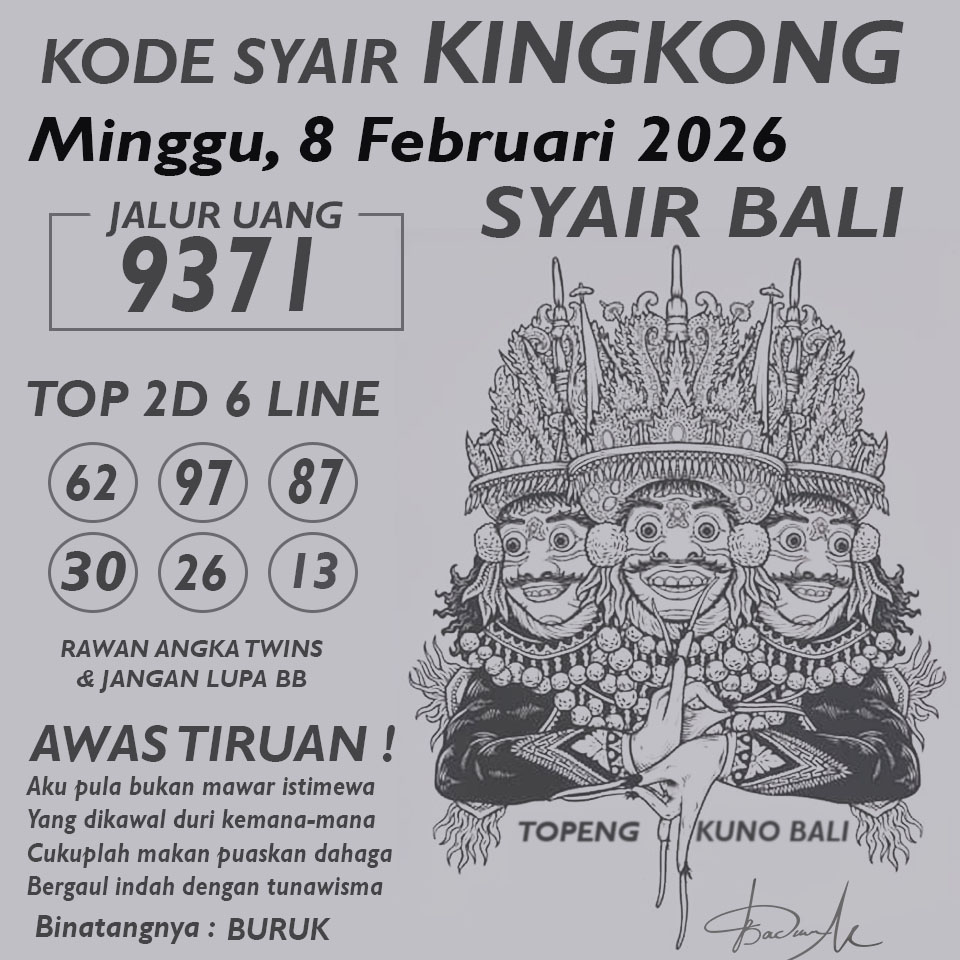 KODE SYAIR KINGKONG
Minggu, 8 Februari 2026
SYAIR BALI
JALUR UANG
9371
TOP 2D 6 LINE
62 97 87
30 26 13
RAWAN ANGKA TWINS
& JANGAN LUPA BB
AWAS TIRUAN !
Aku pula bukan mawar istimewa
Yang dikawal duri kemana-mana
Cukuplah makan puaskan dahaga
Bergaul indah dengan tunawisma
Binatangnya : BURUK
TOPENG KUNO BALI